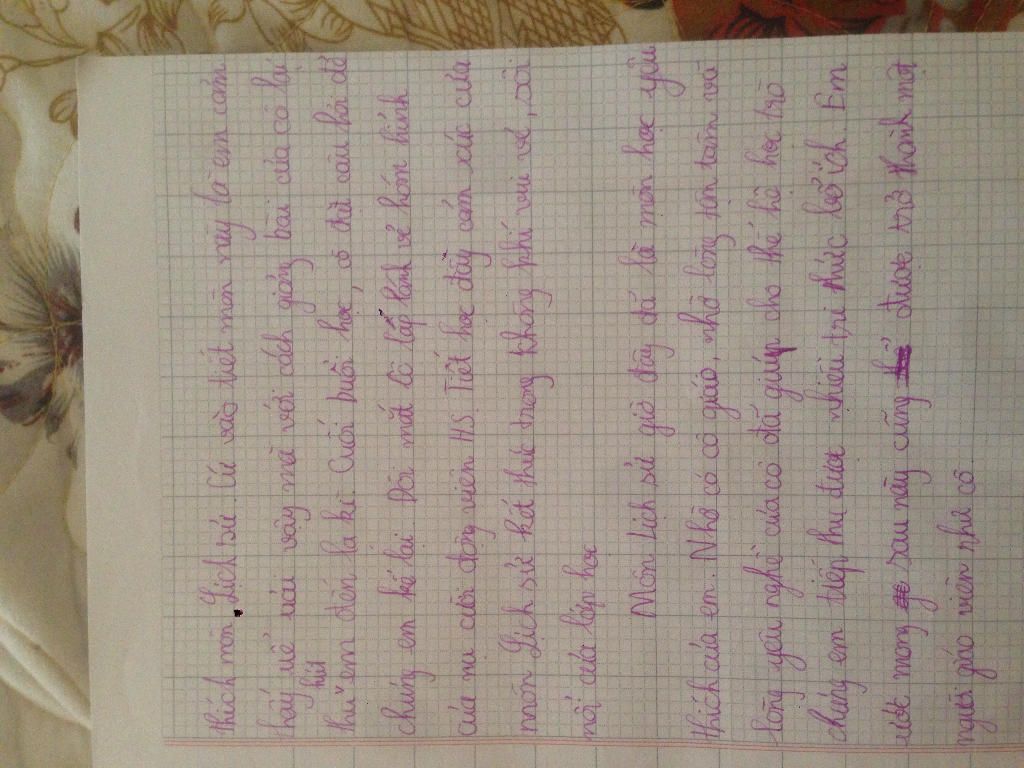 thích môn Lịch sử. Cứ vào tiết môn này là em cảm
thấy uể oải vậy mà với cách giảng bài của cô lại
thu hút em đến lạ kì. Cuối buổi học, cô đặt câu hỏi để
chúng em kể lại. Đôi mắt cô lấp lánh vẻ hóm hỉnh
của nụ cười động viên HS. Tiết học đầy cảm xúc của
môn Lịch sử kết thúc trong không khí vui vẻ, sôi
nổi của lớp học
Môn Lịch sử giờ đây đã là môn học yêu
thích của em. Nhờ có cô giáo, nhờ lòng tận tâm và
lòng yêu nghề của cô đã giúp cho thế hệ học trò
chúng em tiếp thu được nhiều tri thức bổ ích. Em
ước mong sau này cũng được trở thành một
người giáo viên như cô